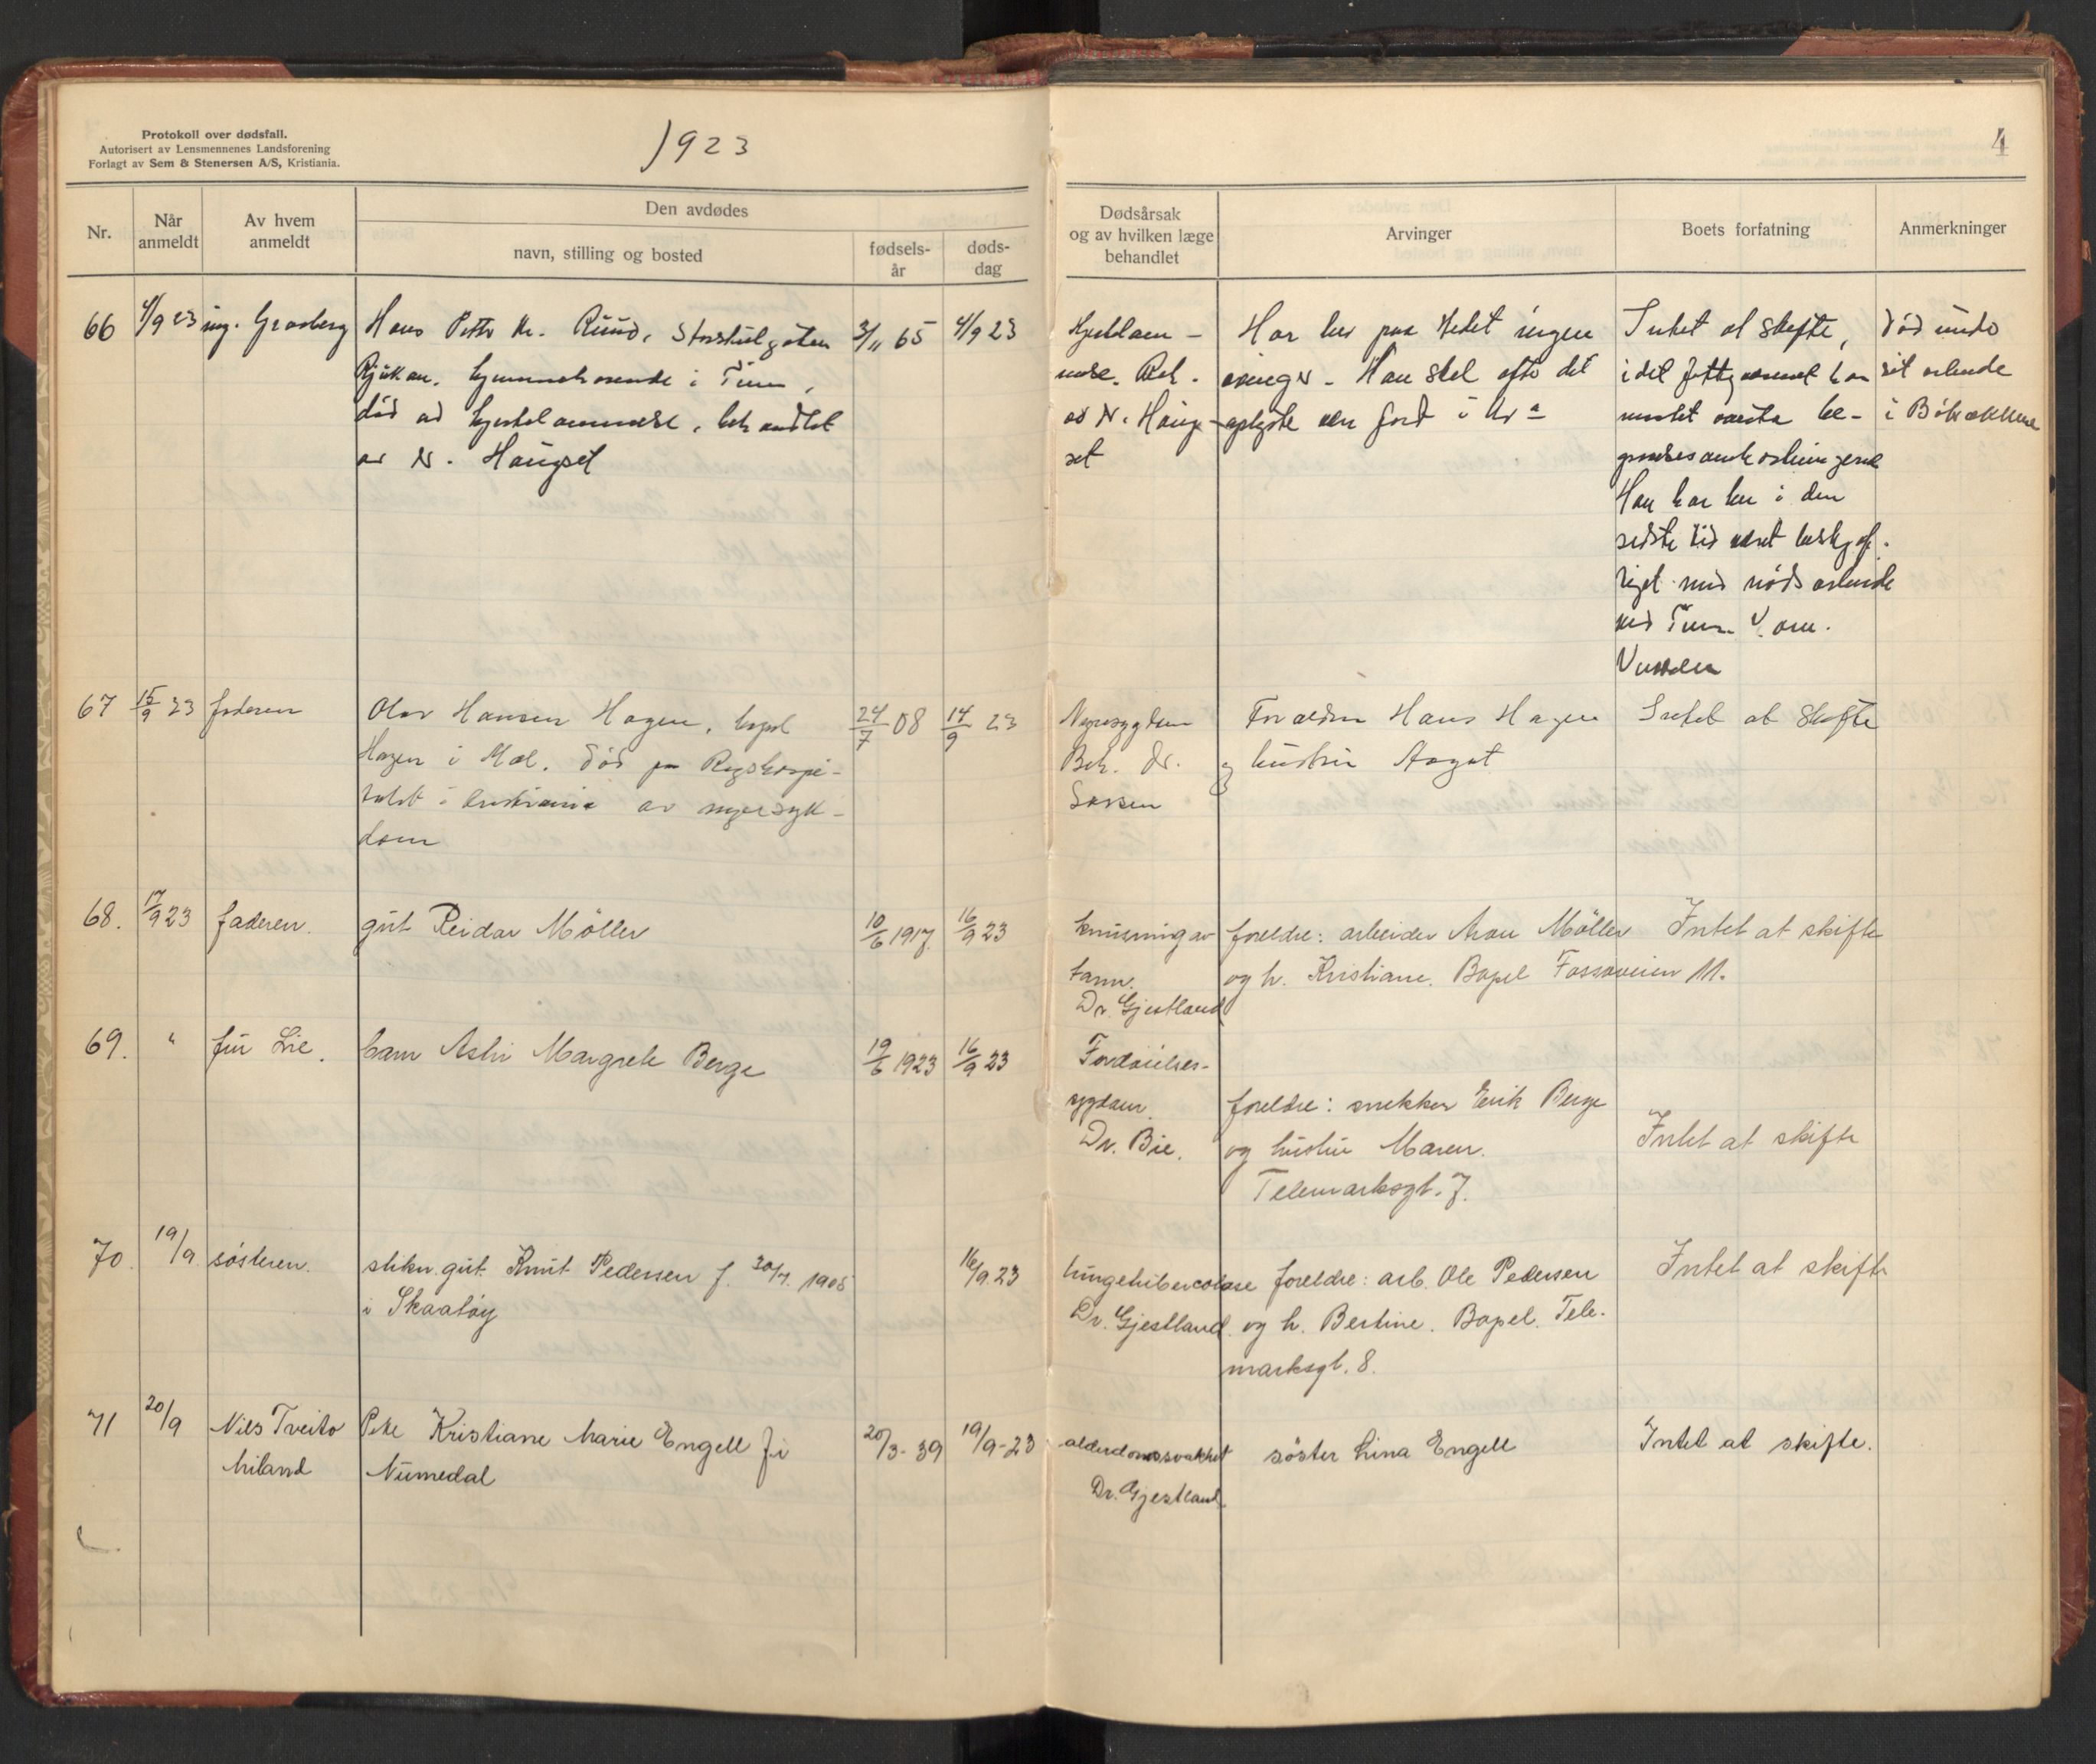 Protokoll over dødsfall.
Autorisert av Lensmennenes Landsforening
Forlagt av Sem & Stenersen A/S, Kristiania.
1923
4
Nr.
Når anmeldt
Av hvem anmeldt
Den avdødes
navn, stilling og bosted
fødsels-år
døds-dag
Dødsårsak
og av hvilken læge
behandlet
Arvinger
Boets forfatning
Anmerkninger
66 4/9 23 ing. Grasberg Hans Petter Kr. Ruud, Storstulgaten 3/11 65 4/9 23 Hjertelam- Har her paa stedet ingen Intet at skifte, Død under
Rjukan. hjemmehørende i Tinn, melse. Beh. arvinger. Han skal efter det idet fattigvæsenet har sit arbeide
død av hjertelammelse, behandlet av Dr. Haug- oplyste være født i Kra maatet utrede be-
av Dr. Haugset set gravelsesomkostningene
Han har her i den
sidste tid været beskjæf-
tiget med nødsarbeide
ved Tinn
67 15/9 23 faderen Olav Hansen Hagen, bopel 24/7 08 14/9 23 Nyresygdom Forældre Hans Hagen Intet at skifte
Hagen i Mæl. Død paa Rigshospi- Beh. Dr. og hustru Aagot
talet i Kristiania av nyresyk-
dom
68. 17/9 23 faderen. gut Reidar Möller 10/6 1917 16/9 23 knusning av foreldre: arbeider Aron Möller Intet at skifte
tarm. og h. Kristiane. Bopel Fossoveien 11.
Dr. Gjestland
69. " fru Lie. barn Astri Margrete Berge 19/6 1923 16/9 23 Fordøielses-
sygdom. foreldre: snekker Erik Berge
Dr. Bie. og hustru Maren. Intet at skifte
Telemarksgt. 7.
70. 19/9 søsteren. sliku. gut Knut Pedersen f. 30/7. 1905 16/9. 23 lungetubercolose foreldre: arb. Ole Pedersen Intet at skifte
i Skaatøy Dr. Gjestland. og h. Bertine. Bopel. Tele-
marksgt. 8.
71 20/9 Nils Tveito Pike Kristiane Marie Engell f. i 20/3 - 39 19/9 - 23 alderdomssvakhet søster Lina Engell Intet at skifte.
Miland Numedal Dr. Gjestland.